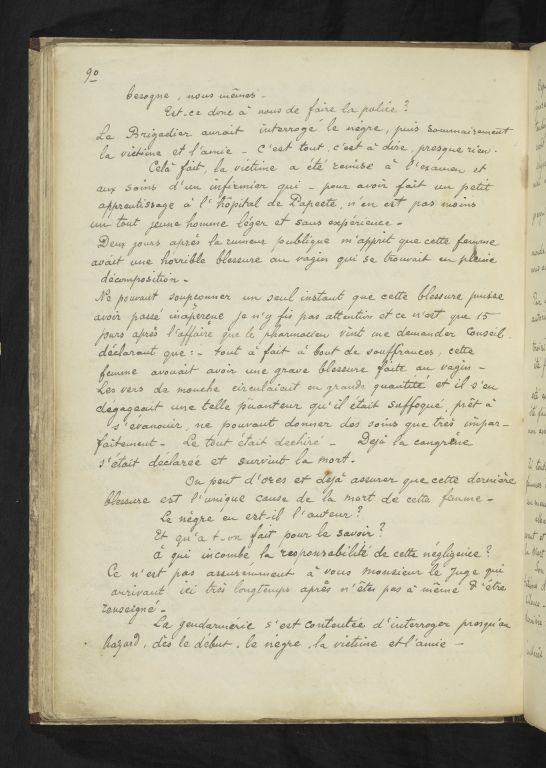 90
besogne, nous mêmes -
Est-ce donc à nous de faire la police?
Le Brigadier aurait interrogé le nègre, puis sommairement
la victime et l'amie - C'est tout, c'est à dire, presque rien.
Celà fait, la victime a été remise à l'examen et
aux soins d'un infirmier qui - pour avoir fait un petit
apprentissage à l'hôpital de Papeete, n'en est pas moins
un tout jeune homme léger et sans expérience -
Deux jours après la rumeur publique m'apprit que cette femme
avait une horrible blessure au vagin qui se trouvait en pleine
décomposition -
Ne pouvant soupçonner un seul instant que cette blessure puisse
avoir passé inaperçue je n'y fis pas attention et ce n'est que 15
jours après l'affaire que le pharmacien vint me demander conseil
déclarant que: - tout à fait à bout de souffrances, cette
femme avouait avoir une grave blessure faite au vagin -
Les vers de mouche circulaient en grande quantité et il s'en
dégageait une telle puanteur qu'il était suffoqué, prêt à
s'évanouir, ne pouvant donner des soins que très impar-
faitement - Le tout était dechiré - Dejà la cangrène
s'était déclarée et survint la mort.
On peut d'ores et dejà assurer que cette dernière
blessure est l'unique cause de la mort de cette femme -
Le nègre en est-il l'auteur?
Et qu'a t-on fait pour le savoir?
à qui incombe la responsabilité de cette négligence?
Ce n'est pas assurément à vous monsieur le Juge qui
arrivant ici très longtemps après n'êtes pas à même d'être
renseigné -
La gendarmerie s'est contentée d'interroger presqu'au
hazard, dès le début, le nègre, la victime et l'amie -